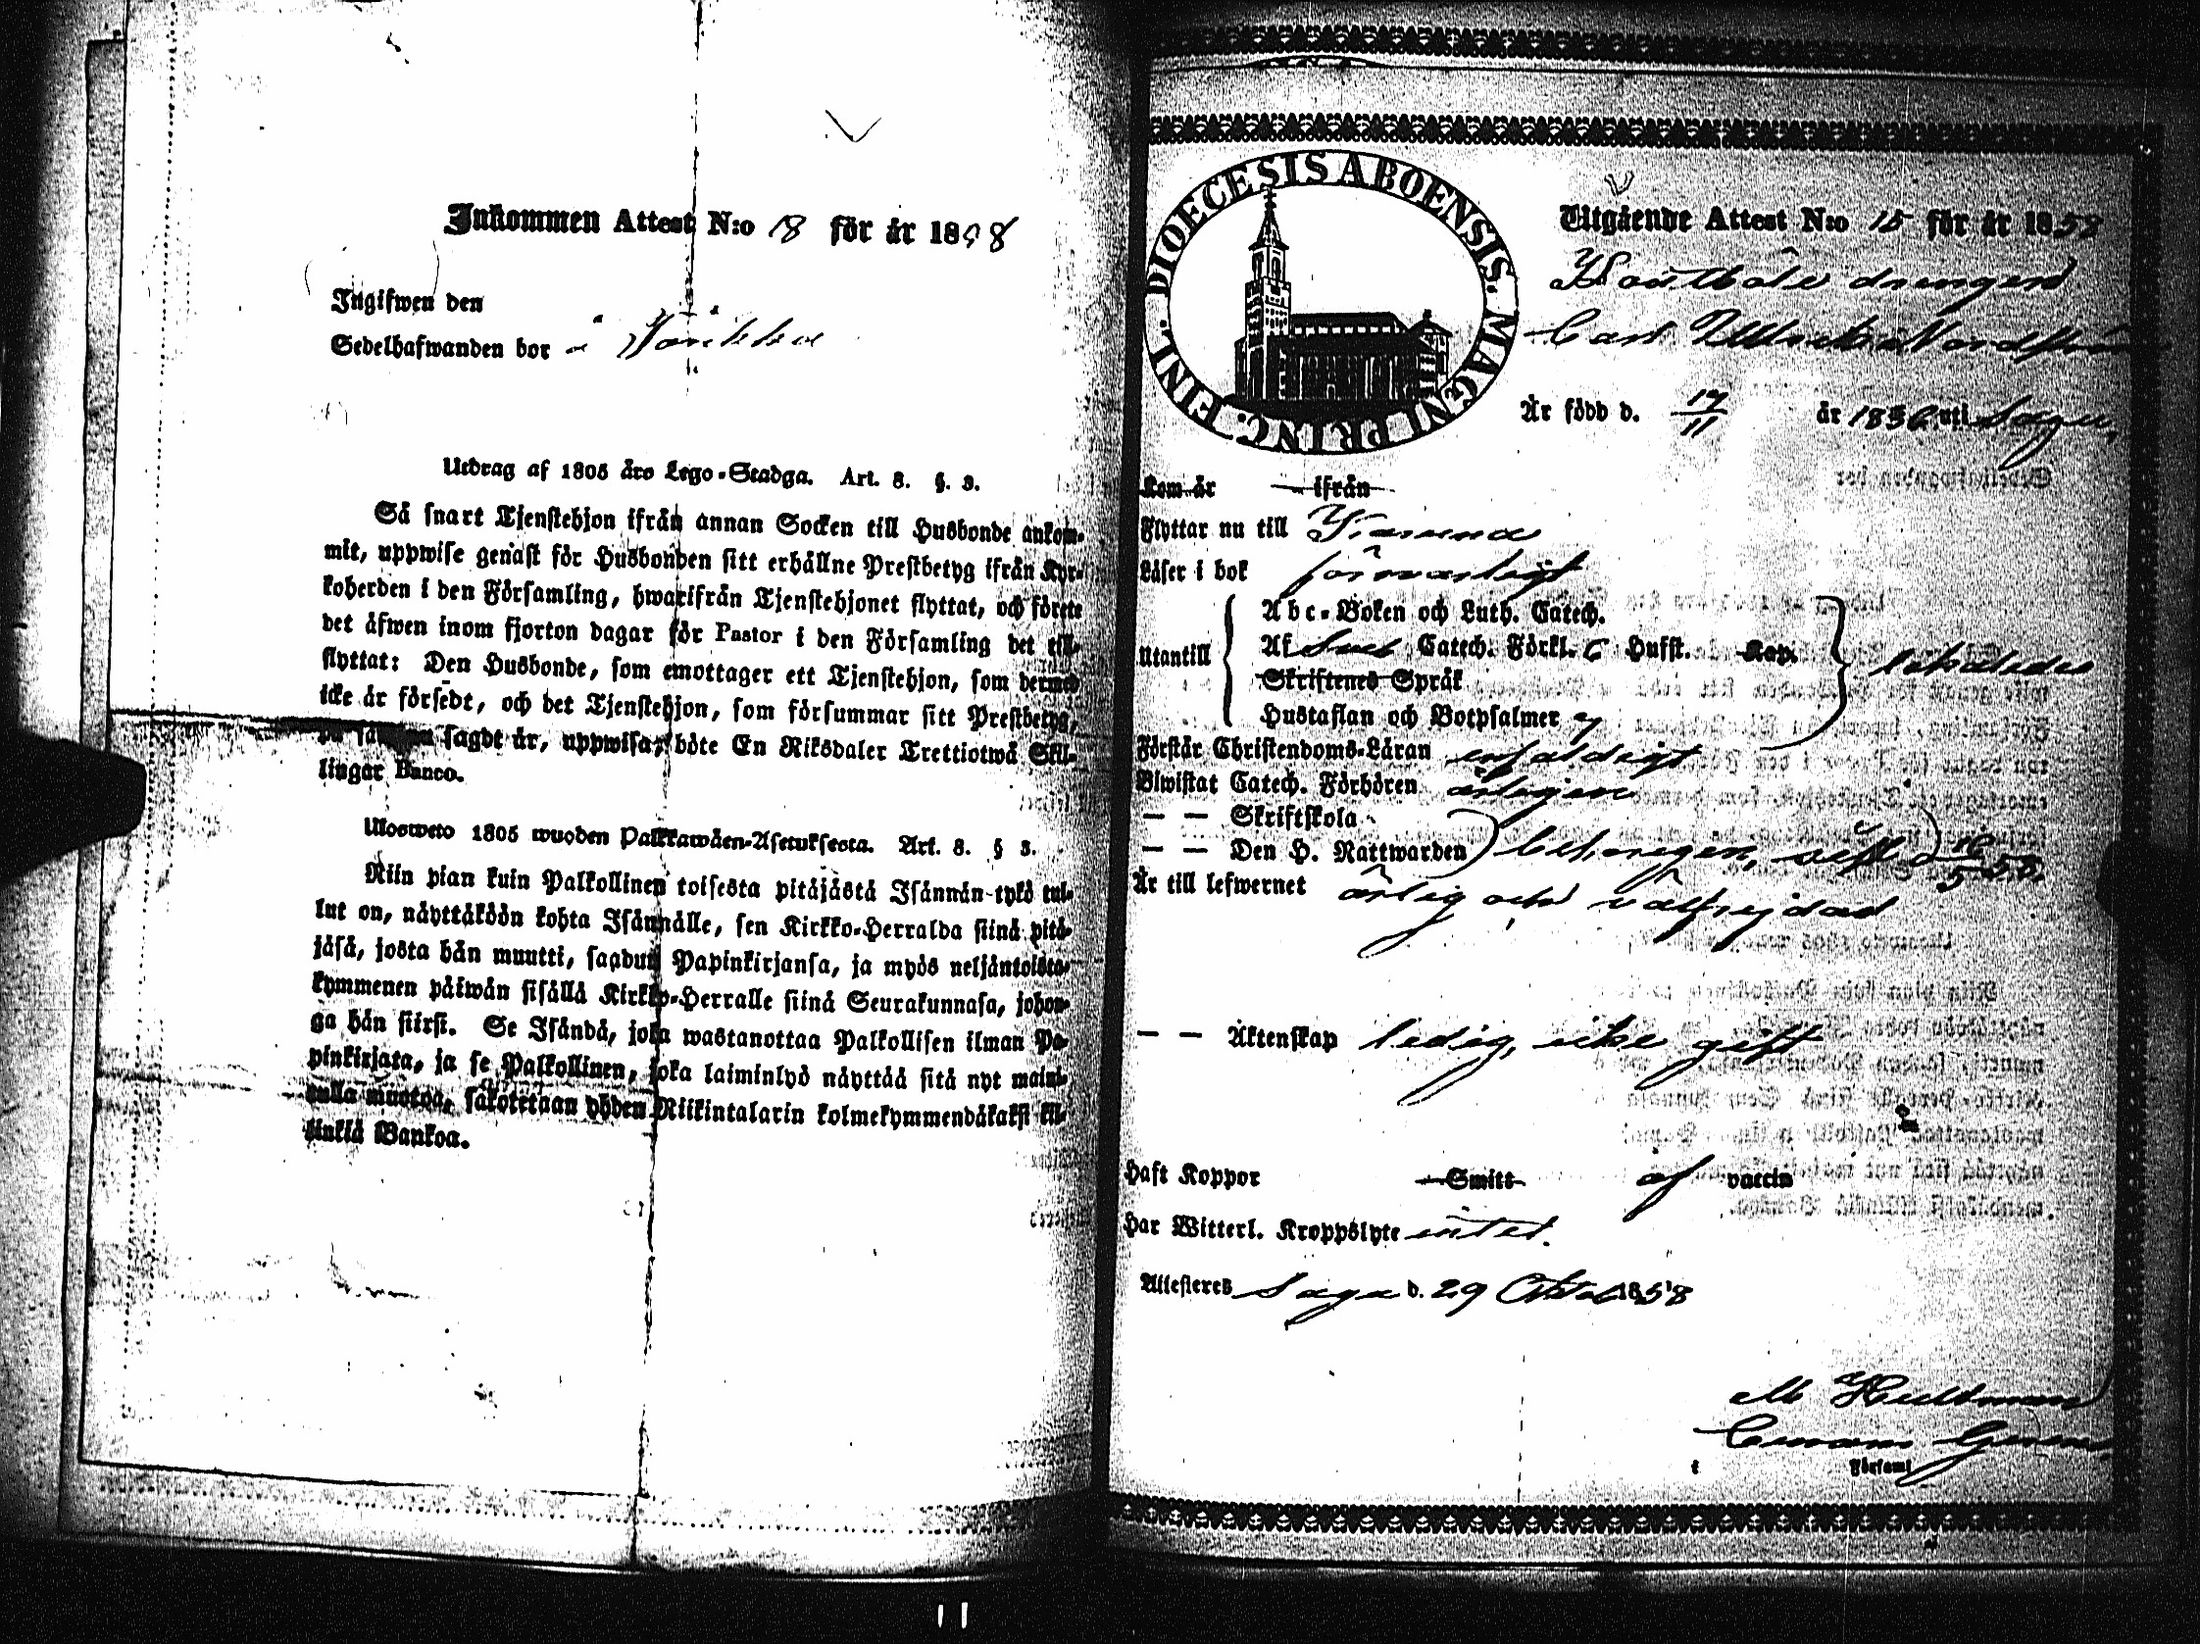 Inkommen Attest N:o 18 för år 1858
Ingifwen den
Sedelhafwanden bor å
Utdrag af 1805 års Lego-Stadga. Art. 8. §. 3.
Så snart Tjenstehjon ifrån annan Socken till Husbonde ankom-
mit, uppwise genast för Husbonden sitt erhållne Prestbetyg ifrån Kyr-
koherden i den Församling, hwarifrån Tjenstehjonet flyttat, och förete
det äfwen inom fjorton dagar för Pastor i den Församling det till-
flyttat: Den Husbonde, som emottager ett Tjenstehjon, som dermed
icke är försedt, och det Tjenstehjon, som försummar sitt Prestbetyg,
på sagdt är, uppwisa, böte En Riksdaler Trettiotwå Skil-
lingar Banco.
Ulosweto 1805 wuoden Palkkawäen-Asetuksesta. Art. 8. § 3.
Niin pian kuin Palkollinen toisesta pitäjästä Isännän tykö tul-
lut on, näyttäköön kohta Isännälle, sen Kirkko-Herralda siinä pitä-
jäsä, josta hän muutti, saadun Papinkirjansa, ja myös neljäntoista-
kymmenen päiwän sisällä Kirkko-Herralle siinä Seurakunnasa, johon-
ga hän siirsi. Se Isändä, joka wastanottaa Palkollisen ilman Pa-
pinkirjata, ja se Palkollinen, joka laiminlyö näyttää sitä nyt maini-
tulla muotoa, sakotetaan yhden Riikintalarin kolmekymmendäkaksi kil-
linkiä Bankoa.
DIOECESIS ABOENSIS. MAGNI PRINC. FINL.
Utgående Attest N:o 15 för år 1858
drengen
Carl Ulrik Nordström
Är född d. 17/11 år 1836 uti Sagu,
Kom år ifrån
Flyttar nu till Kimito
Läser i bok försvarligt
Utantill
Abc-Boken och Luth. Catech.
Af Sveb Catech. Förkl. 6 Hufst. Kap.
Skriftenes Språk
Hustaflan och Botpsalmer ej
Förstår Christendoms-Läran enfaldigt
Biwistat Catech. Förhören årligen
— — Skriftskola
— — Den H. Nattwarden behörigen, sist d 16/5 58.
Är till lefwernet ärlig och välfrejdad
— — Äktenskap ledig, icke gift
Haft Koppor Smitt af vaccin
Har Witterl. Kroppslyte intet.
Attesteres Sagu d. 29 Octob 1858
M Hultman
Församl
11